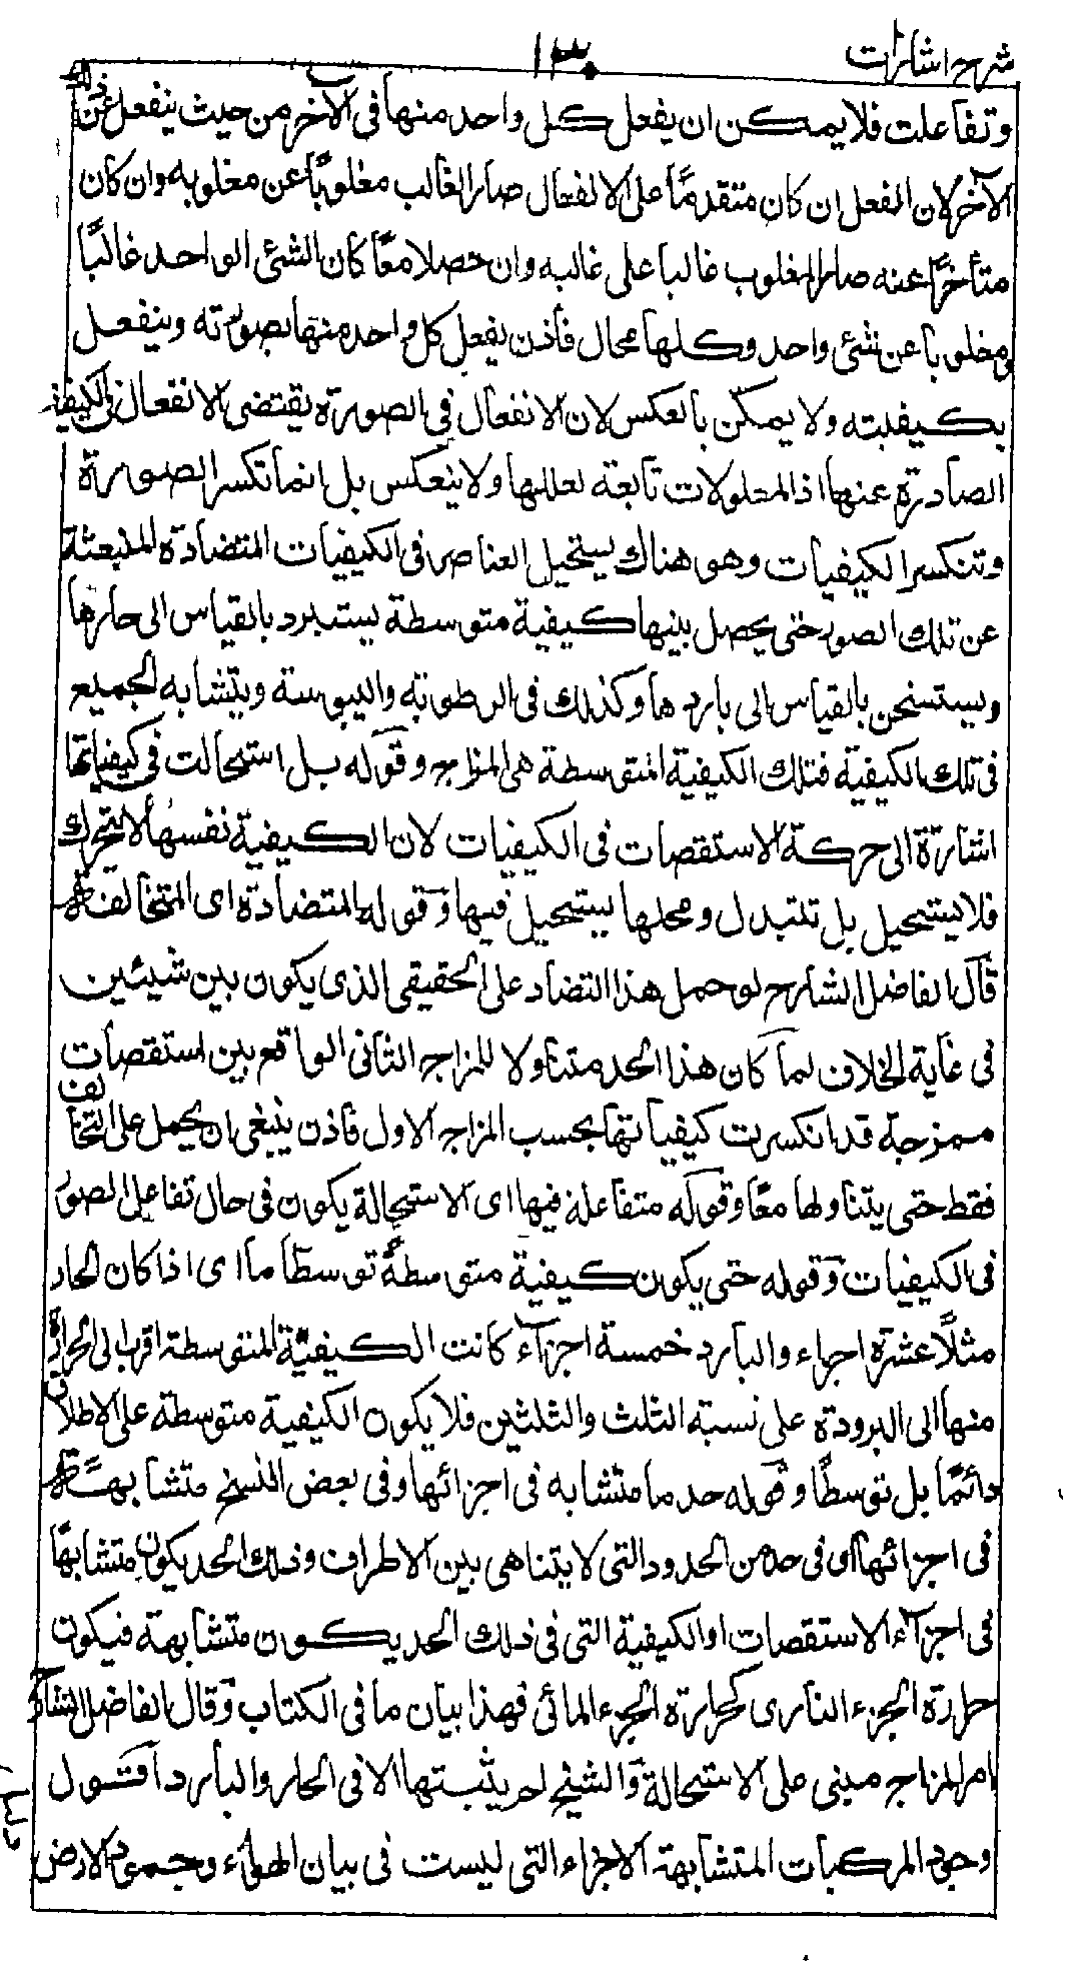 شرح اشارات
١٣٠
وتفاعلت فلا يمكن ان يفعل كل واحد منها فى الآخر من حيث ينفعل عن ذلك
الآخر لان الفعل ان كان متقدمًا على الانفعال صار الغالب مغلوبًا عن مغلوبه وان كان
متأخرًا عنه صار المغلوب غالبا على غالبه وان حصلا معًا كان الشئ الواحد غالبًا
ومغلوبا عن شئ واحد وكلها محال فأذن يفعل كل واحد منها بصورته وينفعل
بكيفيته ولا يمكن بالعكس لان الانفعال فى الصورة يقتضى الانفعال فى الكيفية
الصادرة عنها اذ المعلولات تابعة لعللها ولا ينعكس بل انما تكسر الصورة
وتنكسر الكيفيات وهو هناك يستحيل العناصر فى الكيفيات المتضادة المنبعثة
عن تلك الصور حتى يحصل بينها كيفية متوسطة يستبرد بالقياس الى حارها
ويستسخن بالقياس الى باردها وكذلك فى الرطوبة واليبوسة ويتشابه الجميع
فى تلك الكيفية فتلك الكيفية المتوسطة هى المزاج وقوله بل استحالت فى كيفياتها
اشارة الى حركة الاستقصات فى الكيفيات لان الكيفية نفسها لا تتحرك
فلا يستحيل بل تتبدل ومحلها يستحيل فيها وقوله المتضادة اى المتخالفة
قال الفاضل الشارح لو حمل هذا التضاد على الحقيقى الذى يكون بين شيئين
فى غاية الخلاف لما كان هذا الحد متناولا للمزاج الثانى الواقع بين استقصات
ممزجة قد انكسرت كيفياتها بحسب المزاج الاول فاذن ينبغى ان يحمل على التخالف
فقط حتى يتناولها معًا وقوله متفاعلة فيها اى الاستحالة يكون فى حال تفاعل الصور
فى الكيفيات وقوله حتى يكون كيفية متوسطة توسطًا ما اى اذا كان الحار
مثلًا عشرة اجزاء والبارد خمسة اجزآء كانت الكيفية المتوسطة اقرب الى الحرارة
منها الى البرودة على نسبة الثلث والثلثين فلا يكون الكيفية متوسطة على الاطلاق
دائمًا بل توسطًا وقوله حد ما متشابه فى اجزائها وفى بعض النسخ متشابهة
فى اجزائها اى فى حد من الحدود التى لا يتناهى بين الاطراف وذلك الحد يكون متشابهًا
فى اجزآء الاستقصات او الكيفية التى فى ذلك الحد يكون متشابهة فيكون
حرارة الجزء النارى كحرارة الجزء المائى فهذا بيان ما فى الكتاب وقال الفاضل الشارح
امر المزاج مبنى على الاستحالة والشيخ لم يثبتها الا فى الحار والبارد اقول
وجود المركبات المتشابهة الاجزاء التى ليست فى بيان الهواء وجمود الارض